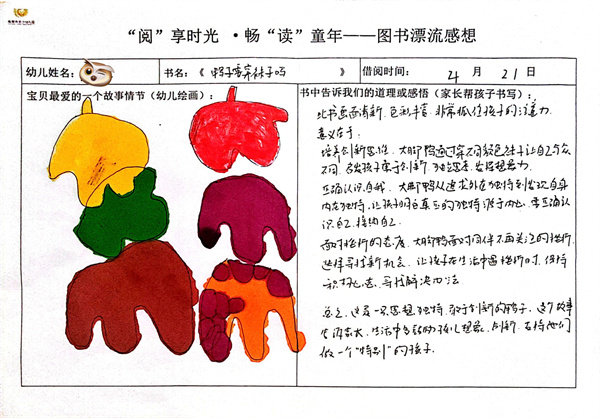 “阅”享时光 ·畅“读”童年——图书漂流感想
幼儿姓名：
书名：《 鸭子需穿袜子吗 》
借阅时间： 4 月 21 日
宝贝最爱的一个故事情节（幼儿绘画）：
书中告诉我们的道理或感悟（家长帮孩子书写）：
此书画面清新，色彩丰富，非常抓住孩子的注意力.
意义在于：
培养创新思维，大脚鸭通过穿不同颜色袜子让自己与众
不同，启发孩子勇于创新，独立思考，发挥想象力.
正确认识自我，大脚鸭从追求外在独特到发现自身
内在独特，让孩子明白真正的独特源于内心，要正确认
识自己，接纳自己.
面对挫折的态度，大脚鸭面对同伴不再关注的挫折，
选择寻找新机会，让孩子在生活中遇挫折时，保持
积极心态，寻找解决办法
总之，这是一只思想独特，敢于创新的鸭子，这个故事
生活中多鼓励孩儿想象，创新，支持他们
做一个“特别”的孩子.